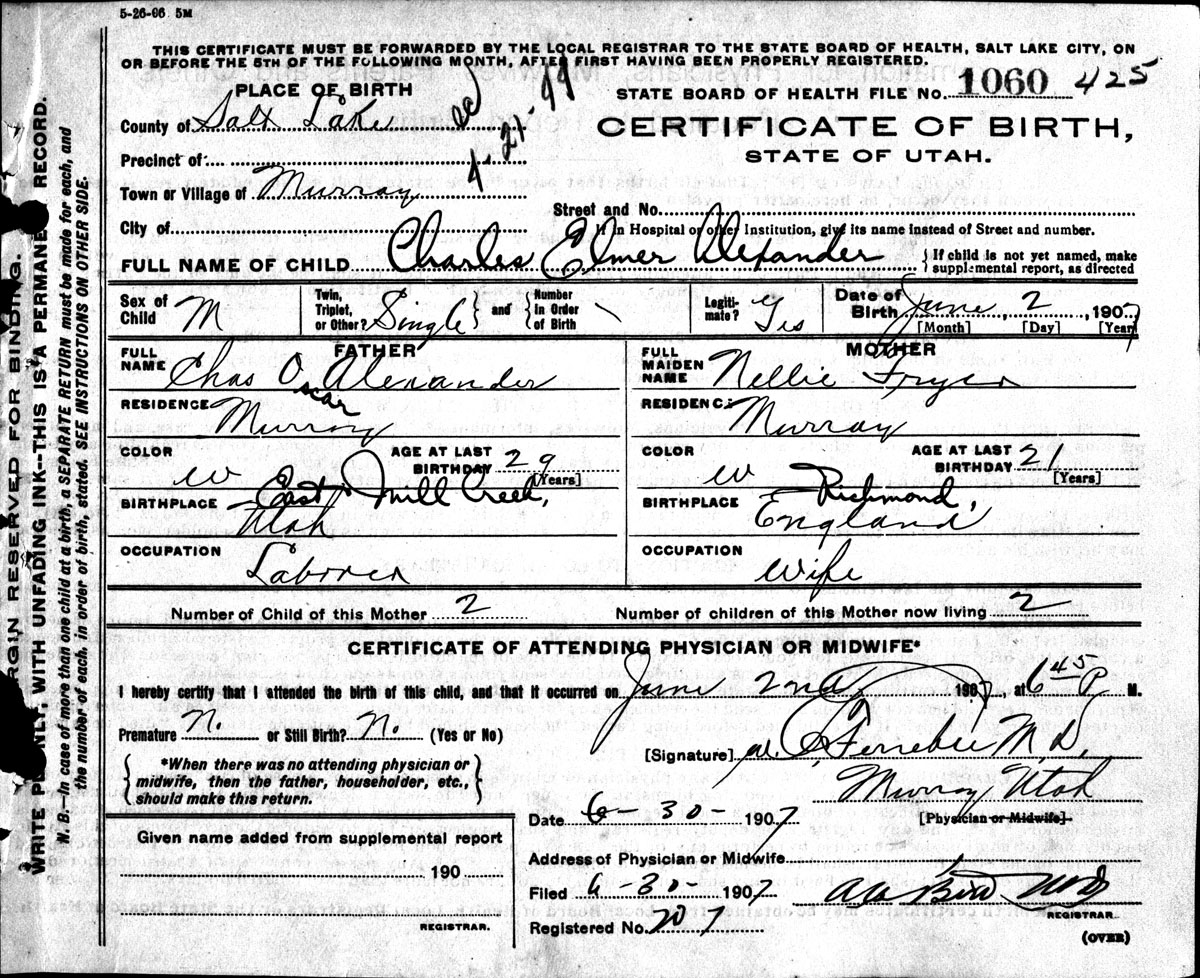 5-26-06 5M
THIS CERTIFICATE MUST BE FORWARDED BY THE LOCAL REGISTRAR TO THE STATE BOARD OF HEALTH, SALT LAKE CITY, ON
OR BEFORE THE 5TH OF THE FOLLOWING MONTH, AFTER FIRST HAVING BEEN PROPERLY REGISTERED.
PLACE OF BIRTH
STATE BOARD OF HEALTH FILE No. 1060 425
County of Salt Lake
4-21-99
CERTIFICATE OF BIRTH,
STATE OF UTAH.
Precinct of
Town or Village of Murray
Street and No.
City of
If in Hospital or other Institution, give its name instead of Street and number.
FULL NAME OF CHILD Charles Elmer Alexander { If child is not yet named, make
supplemental report, as directed
Sex of Child M Twin, Triplet, or Other? Single } and { Number in Order of Birth \ Legiti-mate? Yes Date of Birth June 2, 1907
[Month] [Day] [Year]
FATHER MOTHER
FULL NAME Chas Oscar Alexander FULL MAIDEN NAME Nellie Fryer
RESIDENCE Murray RESIDENCE Murray
COLOR W AGE AT LAST BIRTHDAY 29 [Years] COLOR W AGE AT LAST BIRTHDAY 21 [Years]
BIRTHPLACE East Mill Creek, Utah BIRTHPLACE Richmond, England
OCCUPATION Laborer OCCUPATION Wife
Number of Child of this Mother 2 Number of children of this Mother now living 2
CERTIFICATE OF ATTENDING PHYSICIAN OR MIDWIFE*
I hereby certify that I attended the birth of this child, and that it occurred on June 2nd 1907, at 6 45 P M.
Premature N. or Still Birth? N. (Yes or No)
[Signature] Ferrebee M.D.
*When there was no attending physician or
midwife, then the father, householder, etc.,
should make this return.
Murray Utah
[Physician or Midwife]
Date 6-30-1907
Given name added from supplemental report
190
REGISTRAR.
Address of Physician or Midwife
Filed 6-30-1907.
REGISTRAR.
Registered No. 207
(OVER)
MARGIN RESERVED FOR BINDING.
WRITE PLAINLY, WITH UNFADING INK--THIS IS A PERMANENT RECORD.
N. B.--In case of more than one child at a birth, a SEPARATE RETURN must be made for each, and
the number of each, in order of birth, stated. SEE INSTRUCTIONS ON OTHER SIDE.